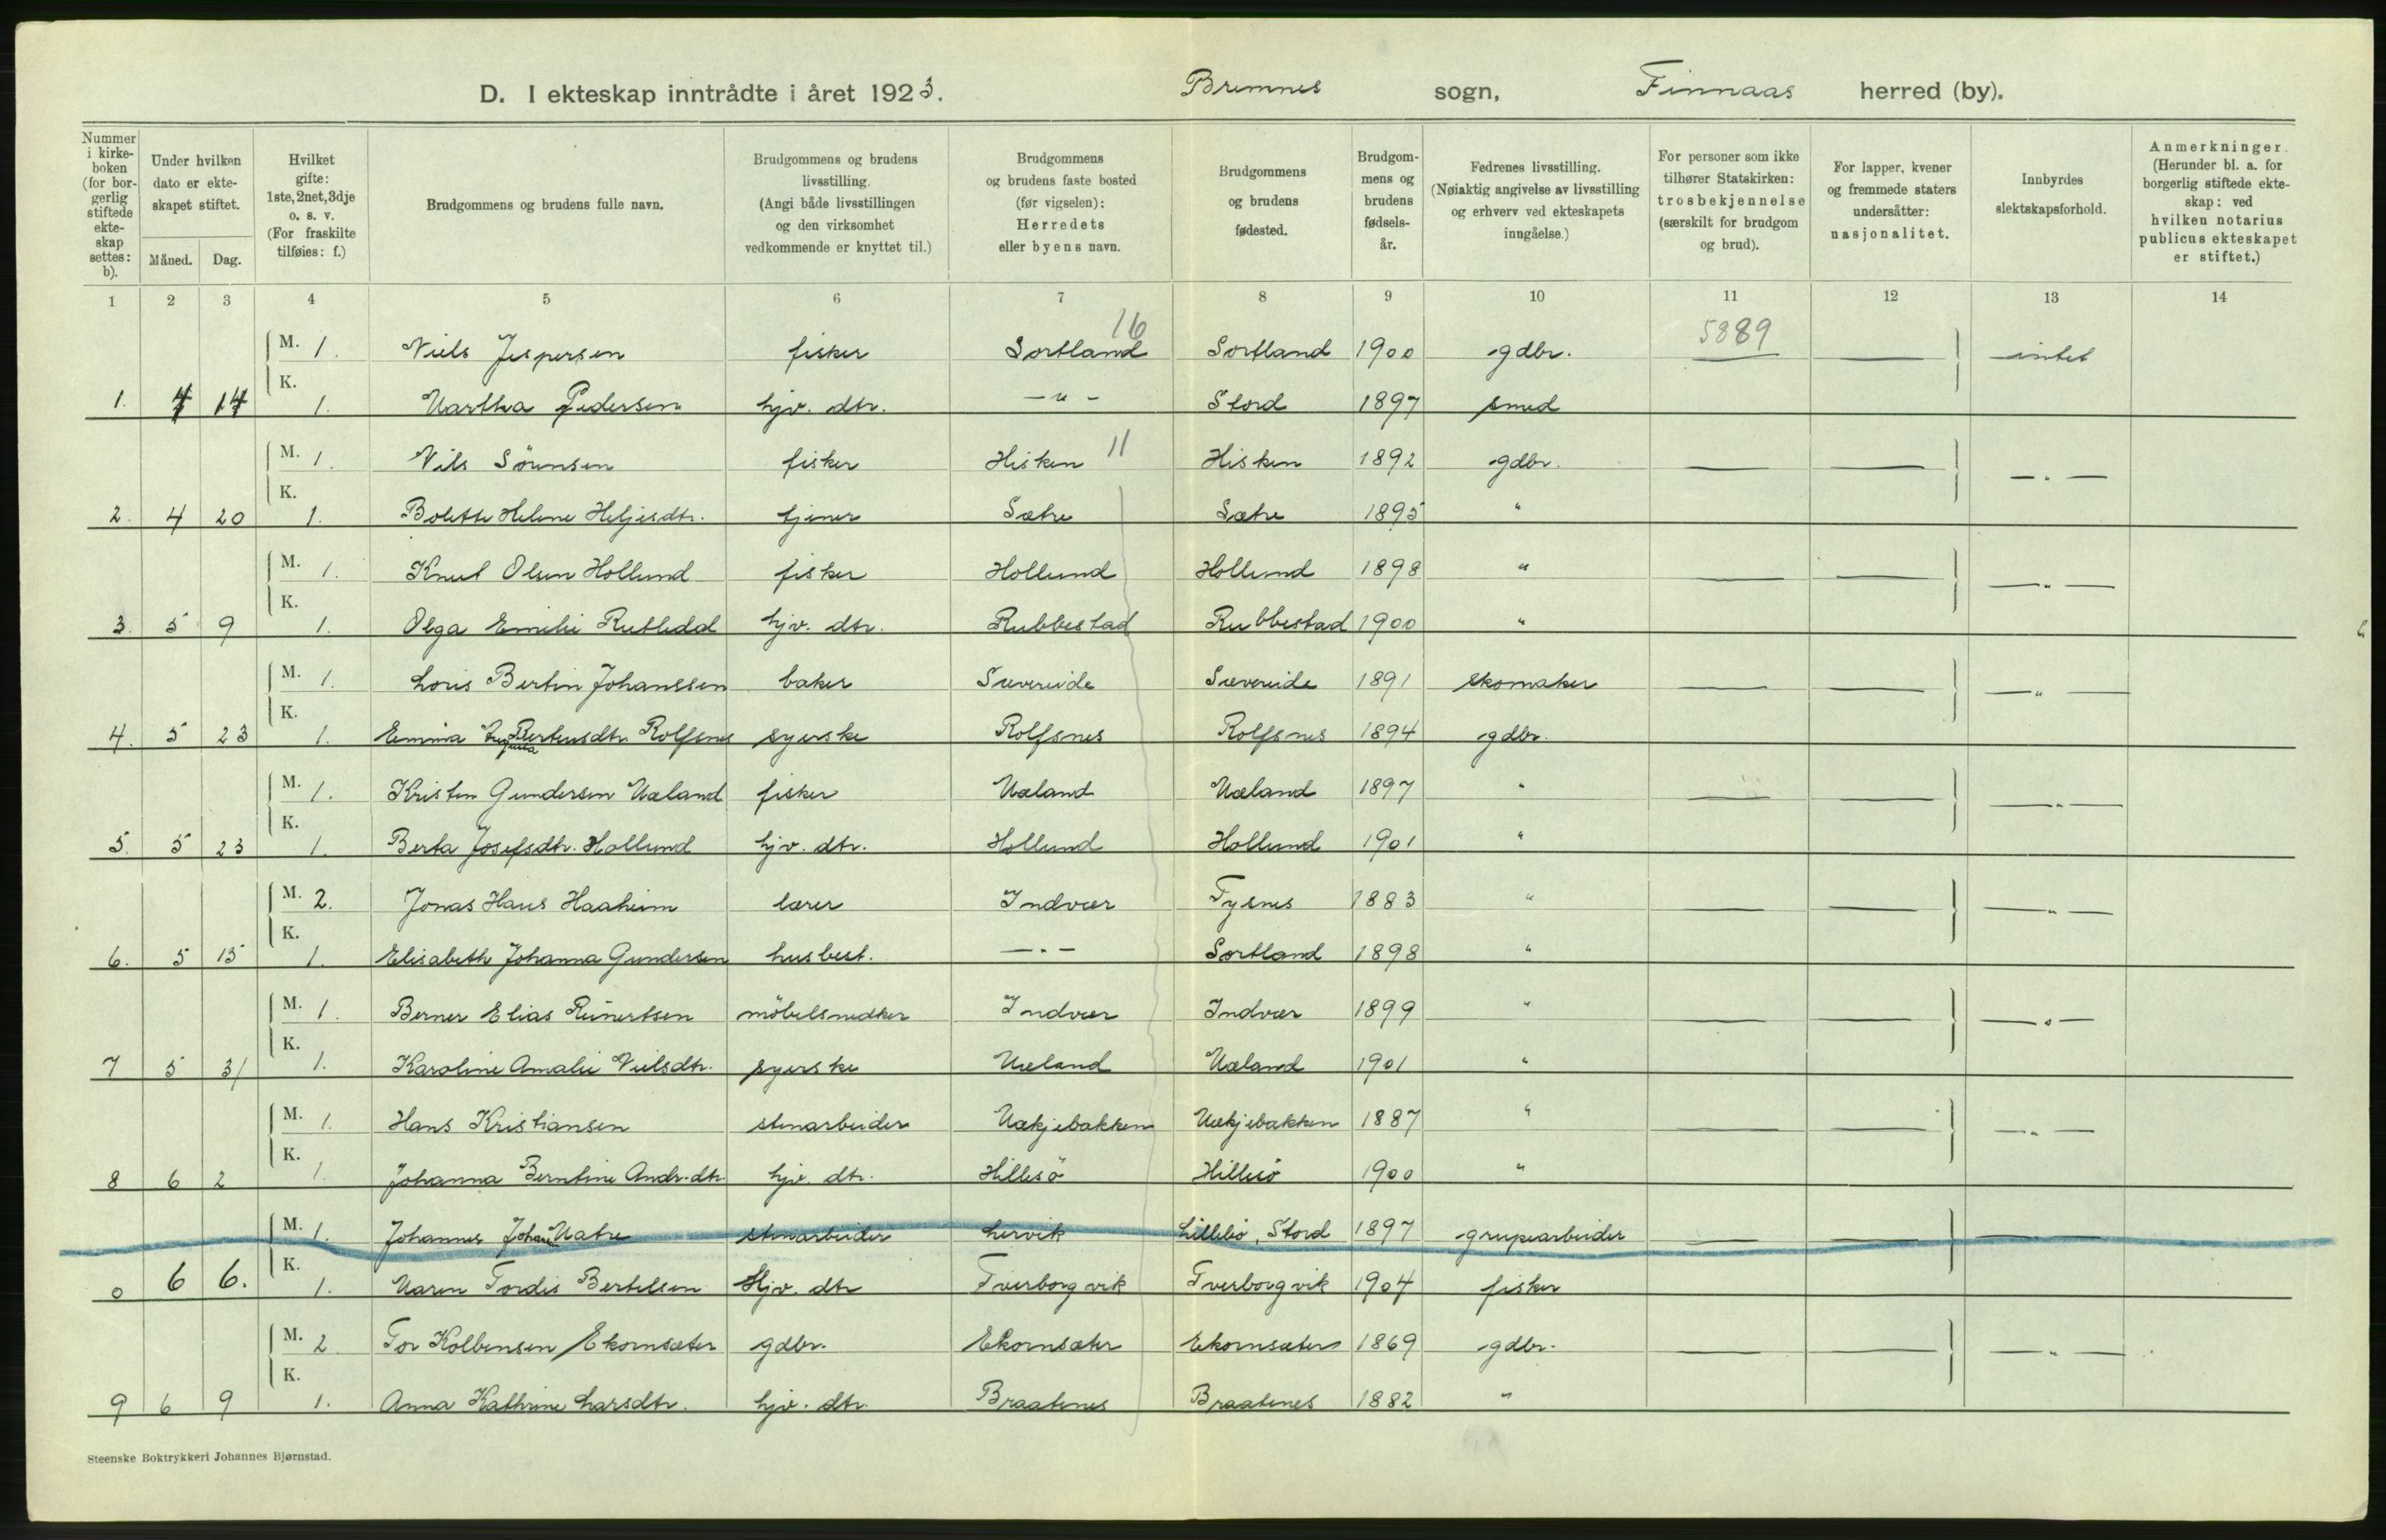 D. I ekteskap inntrådte i året 1923. Bremnes sogn, Finnaas herred (by).
Nummer i kirke- boken (for bor- gerlig stiftede ekte- skap settes: b). Under hvilken dato er ekte- skapet stiftet. Måned. Dag. Hvilket gifte: 1ste, 2net, 3dje o. s. v. (For fraskilte tilføies: f.) Brudgommens og brudens fulle navn. Brudgommens og brudens livsstilling. (Angi både livsstillingen og den virksomhet vedkommende er knyttet til.) Brudgommens og brudens faste bosted (før vigselen): Herredets eller byens navn. Brudgommens og brudens fødested. Brudgom- mens og brudens fødsels- år. Fedrenes livsstilling. (Nøiaktig angivelse av livsstilling og erhverv ved ekteskapets inngåelse.) For personer som ikke tilhører Statskirken: trosbekjennelse (særskilt for brudgom og brud). For lapper, kvener og fremmede staters undersåtter: nasjonalitet. Innbyrdes slektskapsforhold. Anmerkninger. (Herunder bl. a. for borgerlig stiftede ekte- skap: ved hvilken notarius publicus ekteskapet er stiftet.)
1 2 3 4 5 6 7 8 9 10 11 12 13 14
16 5889
M. 1. Niels Jespersen fisker Sortland Sortland 1900 gdbr. — intet
1. 4 14 K. 1. Martha Pedersen hjv. dtr. — " — Stord 1897 smed
M. 1. Nils Sörensen fisker Hisken 11 Hisken 1892 gdbr. — — — " —
2. 4 20 K. 1. Bolette Helene Heljesdtr. tjener Sætre Sætre 1895 "
M. 1. Knut Olsen Hollund fisker Hollund Hollund 1898 " — — — " —
3. 5 9 K. 1. Olga Emilie Rutledal hjv. dtr. Rubbestad Rubbestad 1900 "
M. 1. Loris Bertin Johanssen baker Sævereide Sævereide 1891 skomaker — — — " —
4. 5 23 K. 1. Emma Bertensdtr. Rolfsnes syerske Rolfsnes Rolfsnes 1894 gdbr.
M. 1. Kristen Gundersen Mæland fisker Mæland Mæland 1897 " — — — " —
5. 5 23 K. 1. Berta Josefsdtr. Hollund hjv. dtr. Hollund Hollund 1901 "
M. 2. Jonas Hans Haaheim lærer Indvær Tysnes 1883 " — — — " —
6. 5 15 K. 1. Elisabeth Johanna Gundersen husbest. — " — Sortland 1898 "
M. 1. Berner Elias Reinertsen möbelsnedker Indvær Indvær 1899 " — — — " —
7 5 31 K. 1. Karoline Amalie Nielsdtr. syerske Mæland Mæland 1901 "
M. 1. Hans Kristiansen stenarbeider Mækjebakken Mækjebakken 1887 " — — — " —
8 6 2 K. 1. Johanna Berntine Andr.dtr. hjv. dtr. Hillesö Hillesö 1900 "
M. 1. Johannes Johan Matre stenarbeider Lervik Lillebö, Stord 1897 grupearbeider — —
0 6 6. K. 1. Maren Tordis Bertelsen Hjv. dtr Tverborgvik Tverborgvik 1904 fisker
M. 2. Tor Kolbensen Ekornsæter gdbr. Ekornsæter Ekornsæter 1869 gdbr. — — — " —
9 6 9 K. 1. Anna Kathrine Larsdtr. hjv. dtr. Braatenes Braatenes 1882 "
Steenske Boktrykkeri Johannes Bjørnstad.